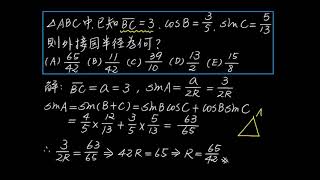 △ABC中,已知BC=3, cosB=3/5, sinC=5/13
则外接园半径為何?
(A) 65/42 (B) 11/42 (C) 39/10 (D) 13/2 (E) 15/8
解: BC=a=3, sinA=a/2R=3/2R
sinA=sin(B+C)=sinBcosC+cosBsinC
=4/5×12/13+3/5×5/13=63/65
∴ 3/2R=63/65⇒42R=65⇒R=65/42